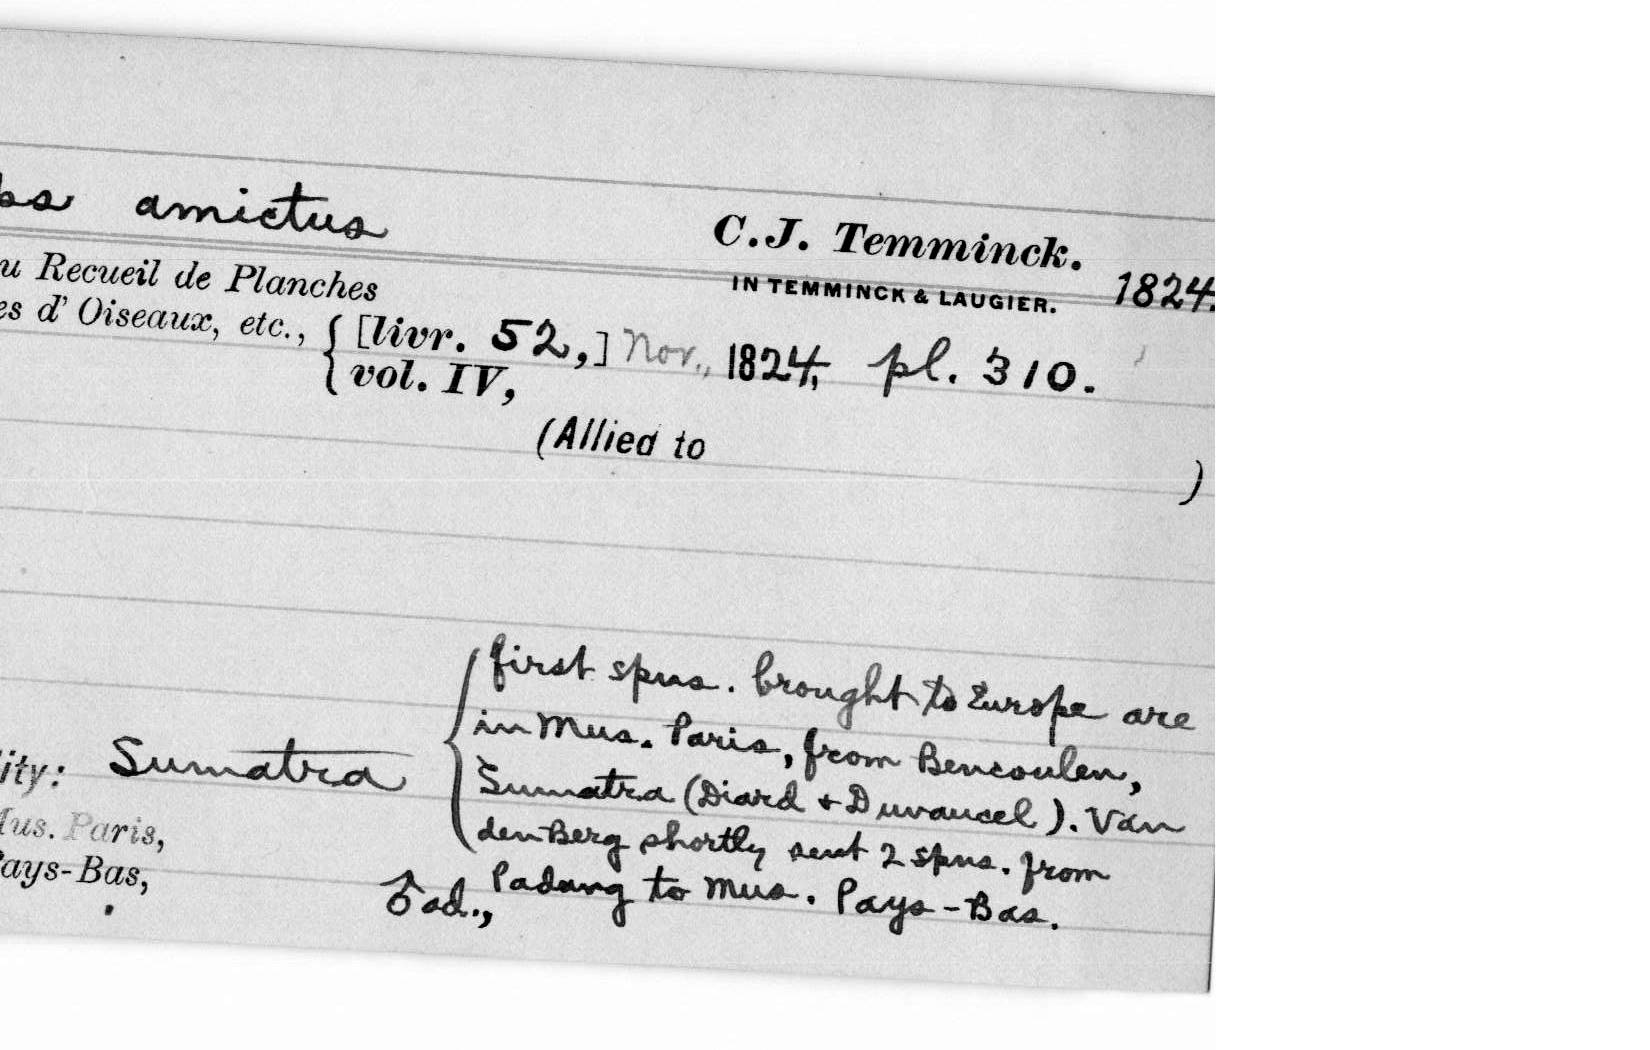 ps amictus
C.J. Temminck.
IN TEMMINCK & LAUGIER. 1824.
u Recueil de Planches
es d' Oiseaux, etc., [livr. 52,] Nov., 1824, pl. 310.
vol. IV,
(Allied to )
first spns. brought to Europe are
in Mus. Paris, from Bencoulen,
ity: Sumatra
Sumatra (Diard + Duvaucel). Van
Mus. Paris,
den Berg shortly sent 2 spns. from
Pays-Bas,
♂ ad., Padang to Mus. Pays-Bas.